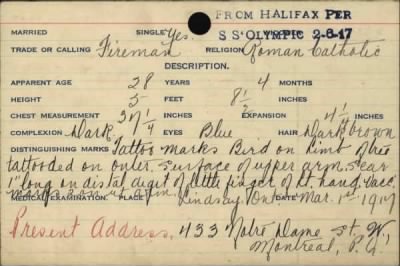 FROM HALIFAX PER
MARRIED SINGLE Yes.
S S OLYMPIC 2-6-17
TRADE OR CALLING Fireman RELIGION Roman Catholic
DESCRIPTION.
APPARENT AGE 28 YEARS 4 MONTHS
HEIGHT 5 FEET 8 1/2 INCHES
CHEST MEASUREMENT 37 1/4 INCHES EXPANSION 4 1/2 INCHES
COMPLEXION Dark EYES Blue HAIR Dark brown
DISTINGUISHING MARKS Tattoo marks Bird on limb of tree
tattooed on outer surface of upper arm. Scar
1" long on distal digit of little finger of lt. hand, Vacc.
marks 3 on lt arm
MEDICAL EXAMINATION. PLACE Lindsay Ont DATE Mar. 1st 1917
Present Address, 433 Notre Dame St. W,
Montreal, P.Q.